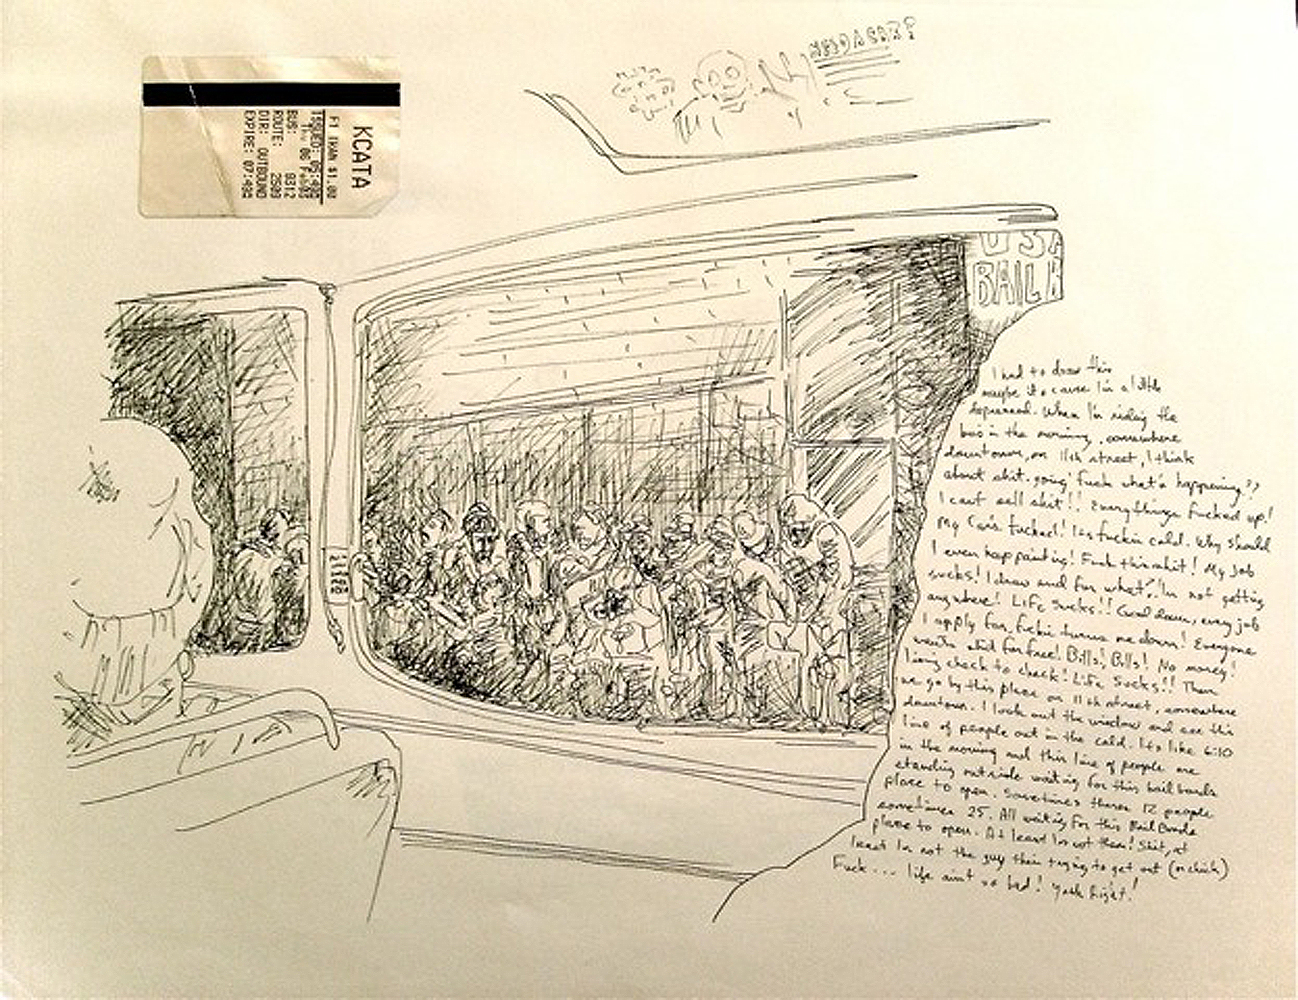 KCATA
F1 TRAN $1.00
ISSUED: 05:49A
Thu 06 Feb03
BUS: 9312
ROUTE: 2509
DIR: OUTBOUND
EXPIRE: 07:49A
USA
BAIL B
I had to draw this
maybe its cause I'm a little
depressed. When I'm riding the
bus in the morning, somewhere
downtown, on 11th street, I think
about shit. going' Fuck what's happening??
I cant sell shit!! Everythings Fucked up!
My Car's Fucked! Its fuckin cold. Why should
I even keep painting! Fuck this shit! My Job
sucks! I draw and for what? I'm not getting
anywhere! Life Sucks!! Goddamn, every job
I apply for, fuckin turns me down! Everyone
wants shit for free! Bills! Bills! No money!
living check to check! Life Sucks!! Then
we go by this place on 11th street, somewhere
downtown. I look out the window and see this
line of people out in the cold. Its like 6:10
in the morning and this line of people are
standing outside waiting for this bail bonds
place to open. Sometimes theres 12 people
sometimes 25. All waiting for this Bail Bonds
place to open. At least Im not them! Shit, at
least Im not the guy their trying to get out (or chick)
Fuck... life aint so bad! Yeah Right!